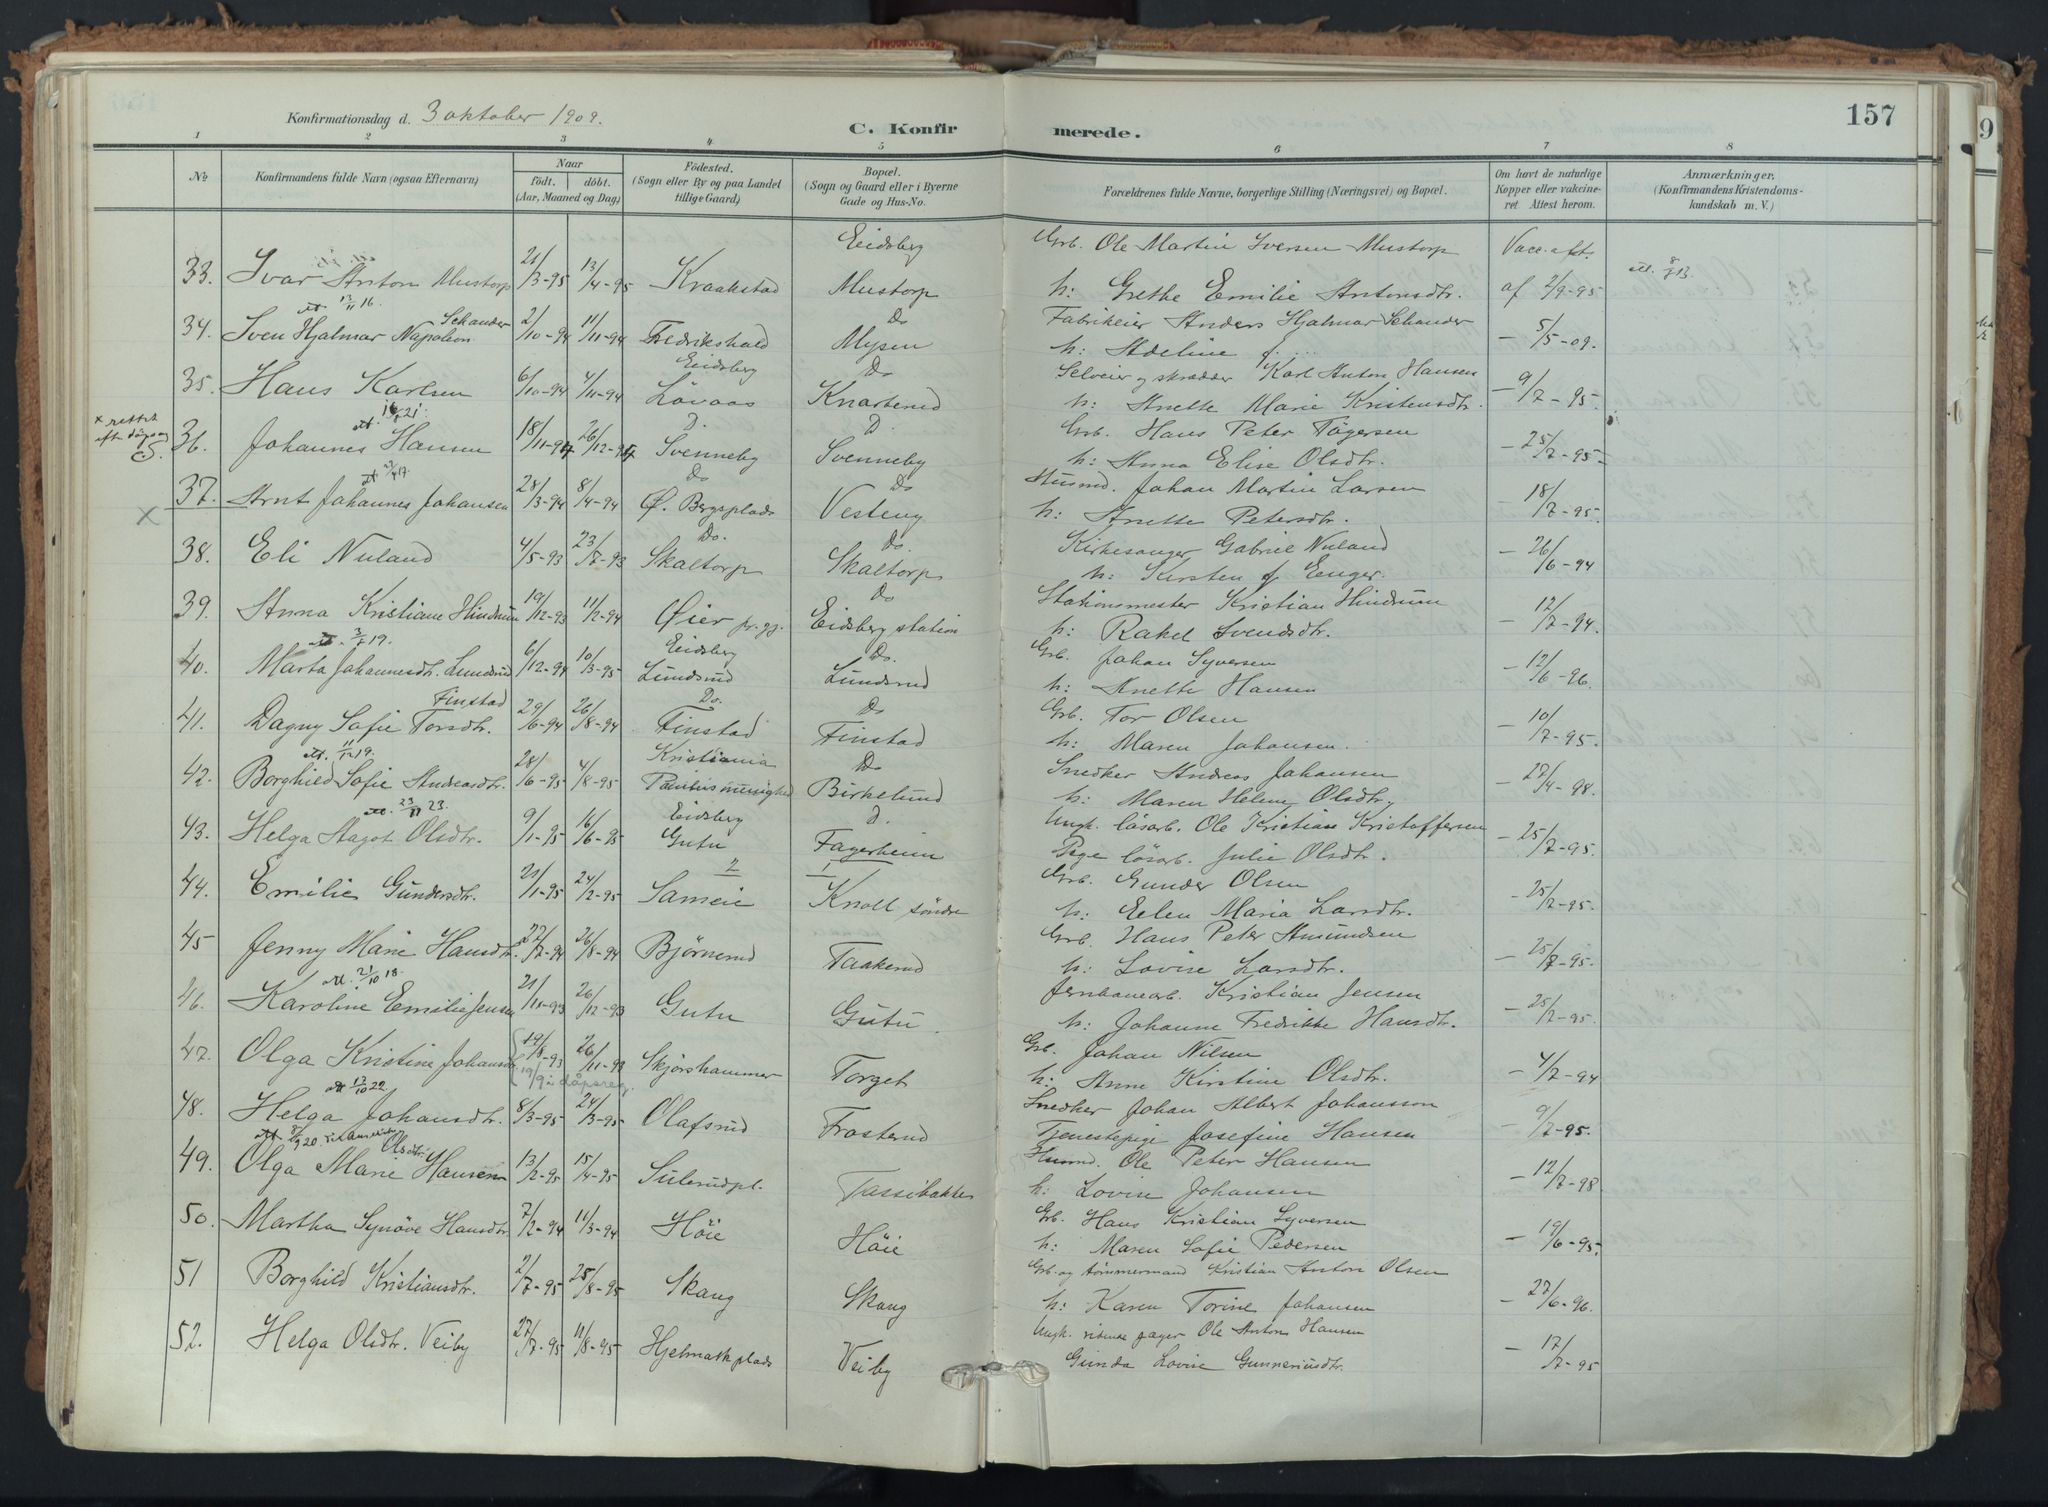 157
Konfirmationsdag d. 3 oktober 1909.
C. Konfirmerede.
1 2 3 4 5 6 7 8
No
Konfirmandens fulde Navn (ogsaa Efternavn)
Naar
födt. döbt.
(Aar, Maaned og Dag)
Födested.
(Sogn eller By og paa Landet tillige Gaard)
Bopæl.
(Sogn og Gaard eller i Byerne Gade og Hus-No.
Forældrenes fulde Navne, borgerlige Stilling (Næringsvei) og Bopæl.
Om havt de naturlige Kopper eller vakcineret Attest herom.
Anmærkninger.
(Konfirmandens Kristendomskundskab m. V.)
Eidsberg Grb. Ole Martin Iversen Mustorp Vacc. att.
33. Ivar Anton Mustorp 21/3-95 13/4-95 Kraakstad Mustorp h: Grethe Emilie Antonsdtr. af 2/9-95 att. 8/1 13.
att. 13/11 16 Schander Do Fabrikeier Anders Hjalmar Schander
34. Sven Hjalmar Napoleon 2/10-94 11/11-94 Fredrikshald Mysen h: Adeline f. .... — 5/5-09.
Eidsberg Do Selveier og skrædder Karl Anton Hansen
35. Hans Karlsen 6/10-94 4/11-94 Lövaas Knarterud h: Anette Marie Kristensdtr. — 9/7-95.
x rettet
efter dåpsreg
D. D. Grb. Hans Peter Tögersen
36. Johannes Hansen 18/11-94 26/12-94 Svenneby Svenneby h: Anna Elise Olsdtr. — 25/7-95.
Do Do Husmd. Johan Martin Larsen
37. Arnt Johannes Johansen 28/3-94 8/4-94 Ø. Bergsplads Vesteng h: Anette Petersdtr. — 18/7-95.
x
Do. Do. Kirkesanger Gabriel Nuland
38. Eli Nuland 4/5-93 23/7-93 Skaltorp Skaltorp h: Kirsten f. Enger. — 26/6-94
Do Stationsmester Kristian Hindrum
39. Anna Kristiane Hindrum 19/12-93 11/2-94 Øier pr. gj. Eidsberg station h: Rakel Svendsdtr. — 12/7-94.
Eidsberg Do. Grb. Johan Syversen
40. Marta Johannesdtr. Lundsrud 6/12-94 10/3-95 Lundsrud Lundsrud h: Anette Hansen — 12/6-96.
Finstad Do. Do Grb. Tor Olsen
41. Dagny Sofie Torsdtr. 29/6-94 26/8-94 Finstad Finstad h: Maren Johansen. — 10/7-95.
att. 11/12 19. Kristiania Do Snedker Andreas Johansen
42. Borghild Sofie Andreasdtr. 28/6-95 4/8-95 Birkelund h: Maren Helene Olsdtr. — 27/4-98.
att. 23/11 23. Eidsberg D. Ungk. lösarb. Ole Kristian Kristoffersen
43. Helga Aagot Olsdtr. 9/1-95 16/6-95 Gutu Fagerheim Pige lösarb. Julie Olsdtr. — 25/7-95.
Grb. Gunder Olsen
44. Emilie Gundersdtr. 21/1-95 24/2-95 Sameie Knoll söndre h: Eelen Maria Larsdtr. — 25/7-95.
Grb. Hans Peter Amundsen
45 Jenny Marie Hansdtr. 22/7-94 26/8-94 Björnerud Taakerud h: Lovise Larsdtr. — 25/7-95.
att. 21/10 18. Jernbanearb. Kristian Jensen
46. Karoline Emilie Jensen 21/11-93 26/12-93 Gutu Gutu. h: Johanne Fredrikke Hansdtr. — 25/7-95.
Grb. Johan Nilsen
47. Olga Kristine Johansdtr. 19/8-93 26/11-93 Skjörshammer Torget h: Anne Kirstine Olsdtr. — 4/7-94
19/9 i dåpsreg.
att 13/10 22. Snedker Johan Albert Johansson
48. Helga Johansdtr. 8/3-95 24/3-95 Olafsrud Frosterud Tjenestepige Josefine Hansen — 9/7-95.
Olsdtr. Husmd. Ole Peter Hansen
49. Olga Marie Hansen 13/2-95 15/4-95 Sulerudpl. Tassibakken h: Lovise Johansen — 12/7-98.
Grb. Hans Kristian Syversen
50. Martha Synöve Hansdtr. 7/2-94 11/3-94 Höie Höie h: Maren Sofie Pedersen — 19/6-95.
Grb. og tömmermand Kristian Anton Olsen
51 Borghild Kristiansdtr. 2/7-95 25/8-95 Skaug Skaug h: Karen Torine Johansen — 27/6-96.
Ungk. Ole Anton Hansen
52. Helga Olsdtr. Veiby 27/7-95 11/8-95 Hjelmarkplads Veiby Gunda Lovise Gunneriusdtr. — 17/7-95